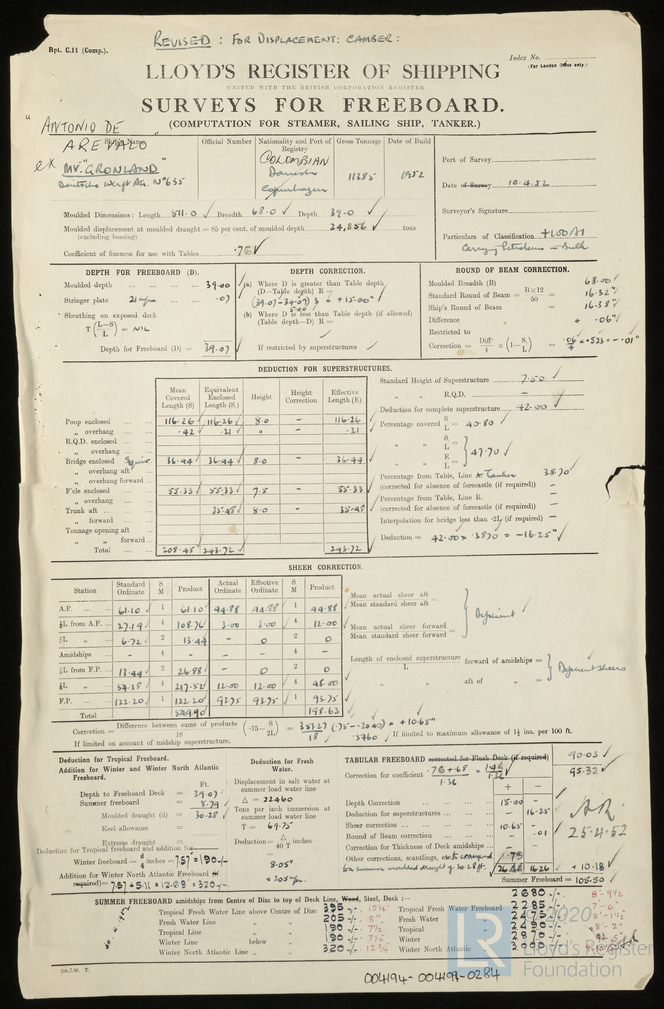 REVISED : FOR DISPLACEMENT: CAMBER:
Rpt. C.11 (Comp.).
Index No.
(For London Office only.)
LLOYD'S REGISTER OF SHIPPING
UNITED WITH THE BRITISH CORPORATION REGISTER
SURVEYS FOR FREEBOARD.
(COMPUTATION FOR STEAMER, SAILING SHIP, TANKER.)
"ANTONIO DE AREVALO"
Ship's Name
ex MV. "GRONLAND"
Deutsche Werft AG. No 635
Official Number
Nationality and Port of Registry
COLOMBIAN
Danish
Copenhagen
Gross Tonnage
11385
Date of Build
1952
Port of Survey
Date of Survey 10.4.52
Surveyor's Signature
Particulars of Classification +100A1
Carrying Petroleum in Bulk
Moulded Dimensions: Length 511.0 Breadth 68.0 Depth 39.0
Moulded displacement at moulded draught = 85 per cent. of moulded depth 24,856 tons
(excluding bossing)
Coefficient of fineness for use with Tables .76
DEPTH FOR FREEBOARD (D).
Moulded depth 39.00
Stringer plate .07
Sheathing on exposed deck
T (L-S/L) = NIL
Depth for Freeboard (D) = 39.07
DEPTH CORRECTION.
(a) Where D is greater than Table depth
(D-Table depth) R =
(39.07-34.07) 3 = +15.00"
5.00
(b) Where D is less than Table depth (if allowed)
(Table depth-D) R =
If restricted by superstructures
ROUND OF BEAM CORRECTION.
Moulded Breadth (B) 68.00
Standard Round of Beam = B×12/50 = 16.32"
Ship's Round of Beam = 16.38"
Difference + .06"
Restricted to
Correction = Diff/4 × (1-S₁/L) = .06/4 × .523 = -.01"
DEDUCTION FOR SUPERSTRUCTURES.
Mean Covered Length (S) Equivalent Enclosed Length (S₁) Height Height Correction Effective Length (E)
Poop enclosed 116.26 116.26 8.0 - 116.26
" overhang .42 .21 " - .21
R.Q.D. enclosed
" overhang
Bridge enclosed 36.44 36.44 8.0 - 36.44
" overhang aft
" overhang forward
F'cle enclosed 55.33 55.33 7.5 - 55.33
" overhang
Trunk aft 35.48 8.0 - 35.48
" forward
Tonnage opening aft
" " forward
Total 208.45 243.72 243.72
Standard Height of Superstructure 7.50
" " R.Q.D. -
Deduction for complete superstructure 42.00
Percentage covered S/L = 40.80
" " S₁/L =
" " E/L = } 47.70
Percentage from Table, Line A Tanker 38.70
(corrected for absence of forecastle (if required))
Percentage from Table, Line B.
(corrected for absence of forecastle (if required))
Interpolation for bridge less than .2L (if required)
Deduction = 42.00 × .3870 = -16.25"
SHEER CORRECTION.
Station Standard Ordinate S M Product Actual Ordinate Effective Ordinate S M Product
A.P. 61.10 1 61.10 44.88 44.88 1 44.88
⅙L from A.P. 27.19 4 108.76 3.00 3.00 4 12.00
⅓L " 6.72 2 13.44 - 0 2 0
Amidships - 4 - - - 4 -
⅓L from F.P. 13.44 2 26.88 - 0 2 0
⅙L " 54.38 4 217.52 12.00 12.00 4 48.00
F.P. 122.20 1 122.20 93.75 93.75 1 93.75
Total 549.90 198.63
Mean actual sheer aft
Mean standard sheer aft =
Mean actual sheer forward
Mean standard sheer forward = } Deficient
Length of enclosed superstructure/L forward of amidships =
" " aft of " = } Deficient sheers
Correction = Difference between sums of products/18 (.75-S/2L) = 351.27/18 (.75-.2040) = +10.65"
.5460
If limited to maximum allowance of 1½ ins. per 100 ft.
If limited on account of midship superstructure.
Deduction for Tropical Freeboard.
Addition for Winter and Winter North Atlantic Freeboard.
Ft.
Depth to Freeboard Deck = 39.07
Summer freeboard = 8.79
Moulded draught (d) = 30.28
Keel allowance =
Extreme draught =
Deduction for Tropical freeboard and addition for
Winter freeboard = d/4 inches = 7.57 = 190-/-
Addition for Winter North Atlantic Freeboard (if
required) = 7.57 + 5.11 = 12.68 = 320-/-
Deduction for Fresh Water.
Displacement in salt water at summer load water line
Δ = 22460
Tons per inch immersion at summer load water line
T = 69.75
Deduction = Δ/40 T inches
= 8.05"
= 205-/-
TABULAR FREEBOARD corrected for Flush Deck (if required) 90.03
Correction for coefficient .76+.68/1.36 = 1.44/1.36 95.32
+ -
Depth Correction 15.00 -
Deduction for superstructures - 16.25
Sheer correction 10.65
Round of Beam correction - .01
Correction for Thickness of Deck amidships - -
Other corrections, scantlings, etc. .79
for Summer moulded draught of 30.28 ft. 26.44 16.26 +10.18
Summer Freeboard = 105.50
25.4.52
SUMMER FREEBOARD amidships from Centre of Disc to top of Deck Line, Wood, Steel, Deck :-
Tropical Fresh Water Line above Centre of Disc 395-/- 15½"
Fresh Water Line " " 205-/- 8"
Tropical Line " " 190-/- 7½"
Winter Line below " 190-/- 7½"
Winter North Atlantic Line " " 320-/- 12¾"
2680-/- 8'-9½"
Tropical Fresh Water Freeboard 2285-/- 7'-6"
Fresh Water " 2475-/- 8'-1½"
Tropical " 2490-/- 8'-2"
Winter " 2870-/-
Winter North Atlantic " 3000-/-
©2020
LR
Lloyd's Register
Foundation
004194-004199-0284